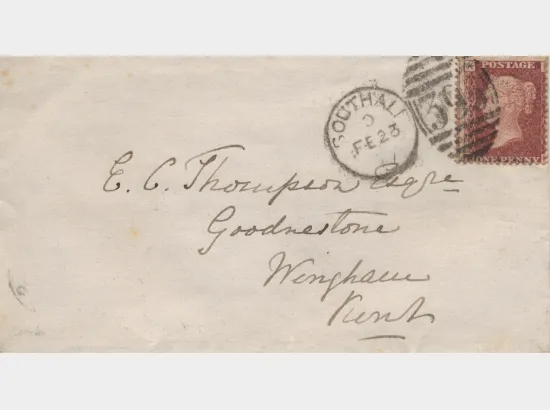 POSTAGE
ONE PENNY
SOUTHALL
FE 23
E. C. Thompson Esqre
Goodnestone
Wingham
Kent